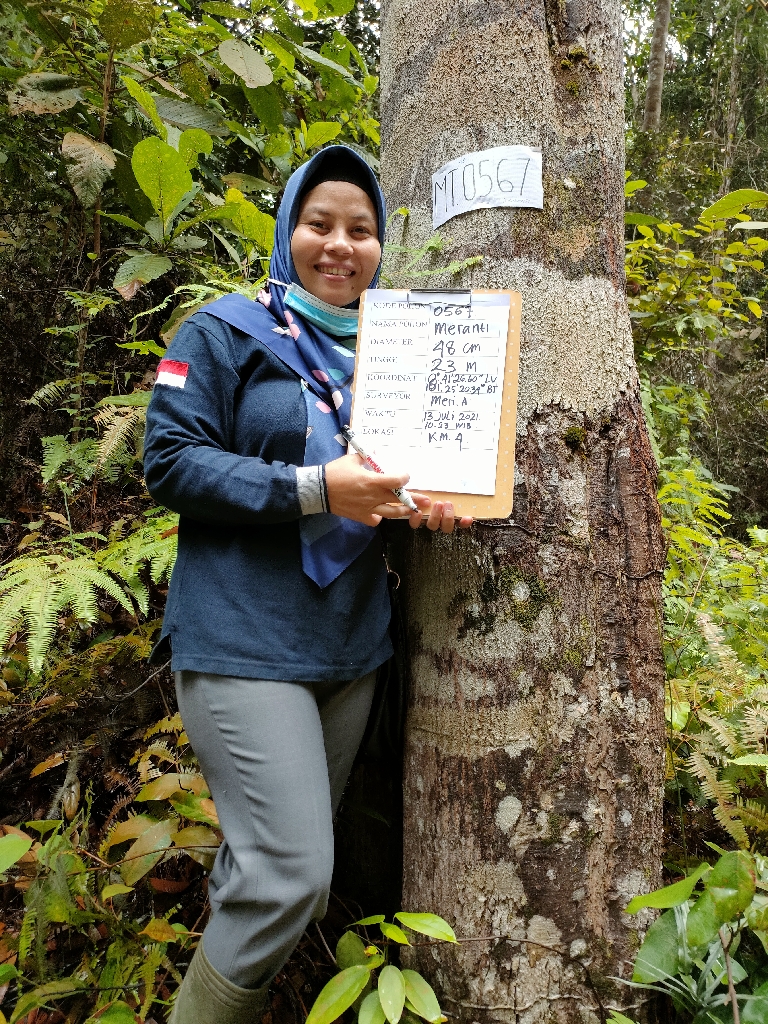 MT.0567
KODE POHON 0567
NAMA POHON Meranti
DIAMETER 48 cm
TINGGI 23 M
KOORDINAT 0°.41'26.60" LU
101.25'2034" BT
SURVEYOR Meri.A
WAKTU 13 Juli 2021
10.53 WIB
LOKASI KM.4